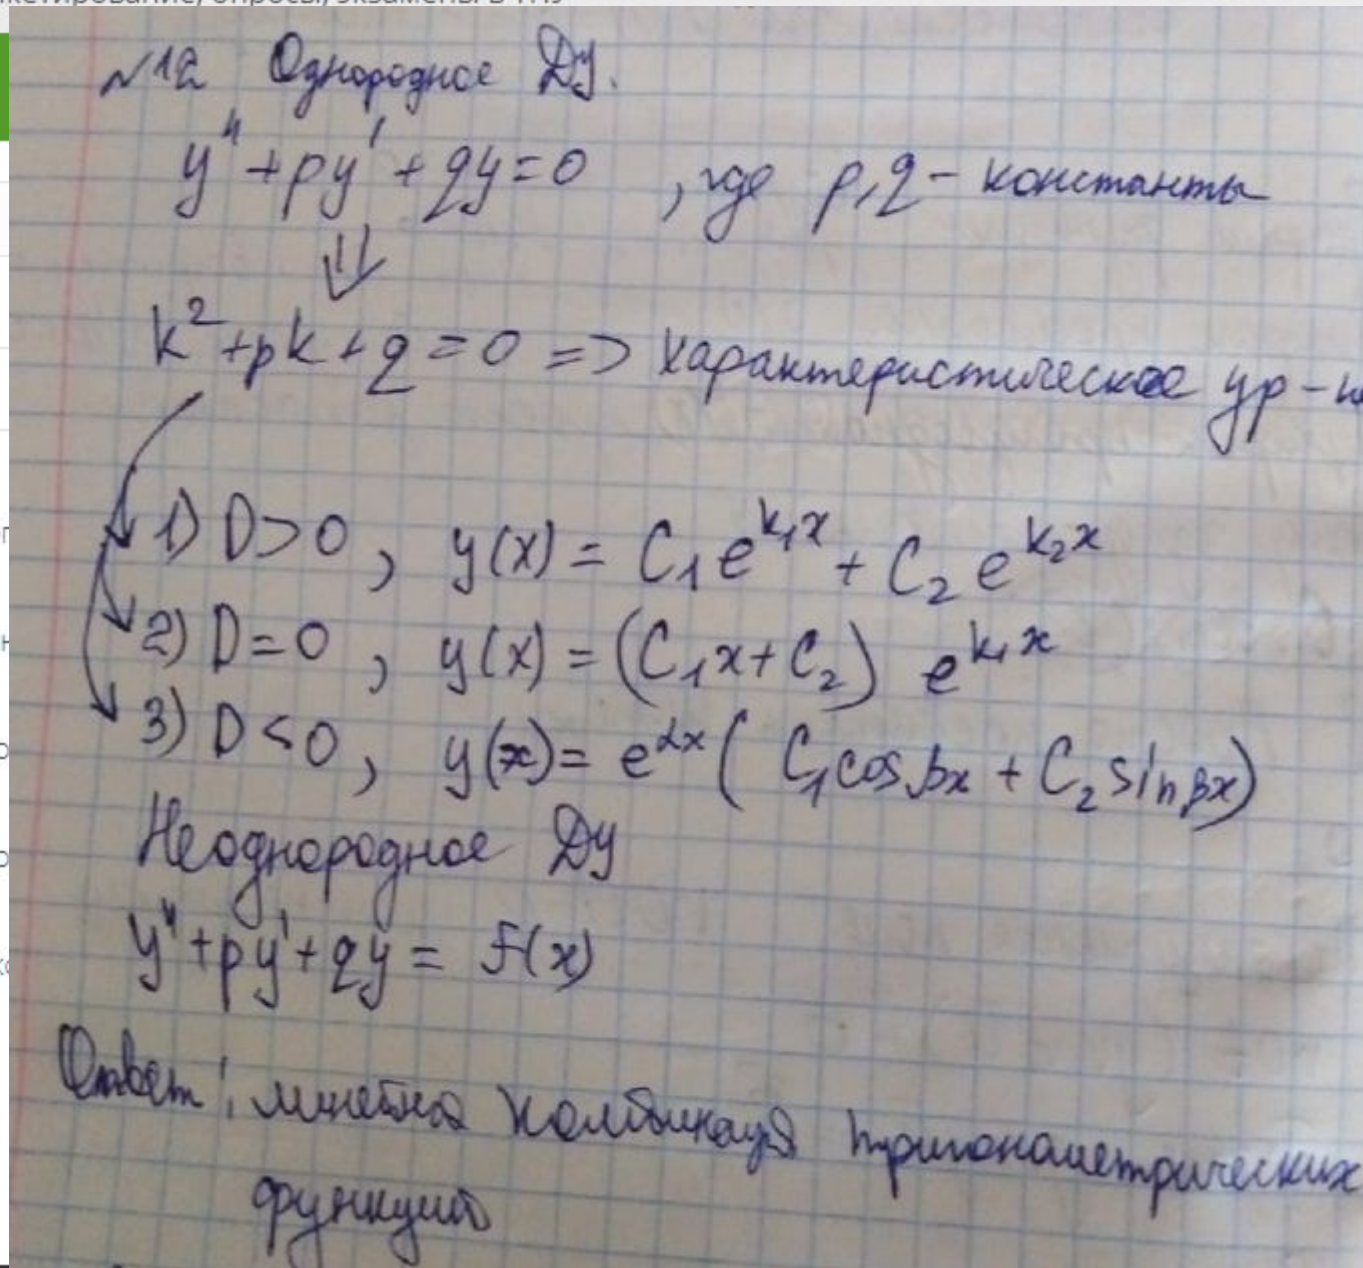 №12 Однородное ДУ.
y'' + py' + qy = 0 , где p, q - константы
⇓
k² + pk + q = 0 => характеристическое ур-
1) D > 0 , y(x) = C₁e^(k₁x) + C₂e^(k₂x)
2) D = 0 , y(x) = (C₁x + C₂) e^(k₁x)
3) D < 0 , y(x) = e^(αx) ( C₁cosβx + C₂sinβx)
Неоднородное ДУ
y'' + py' + qy = F(x)
Ответ: линейная комбинация тригонометрических
функций